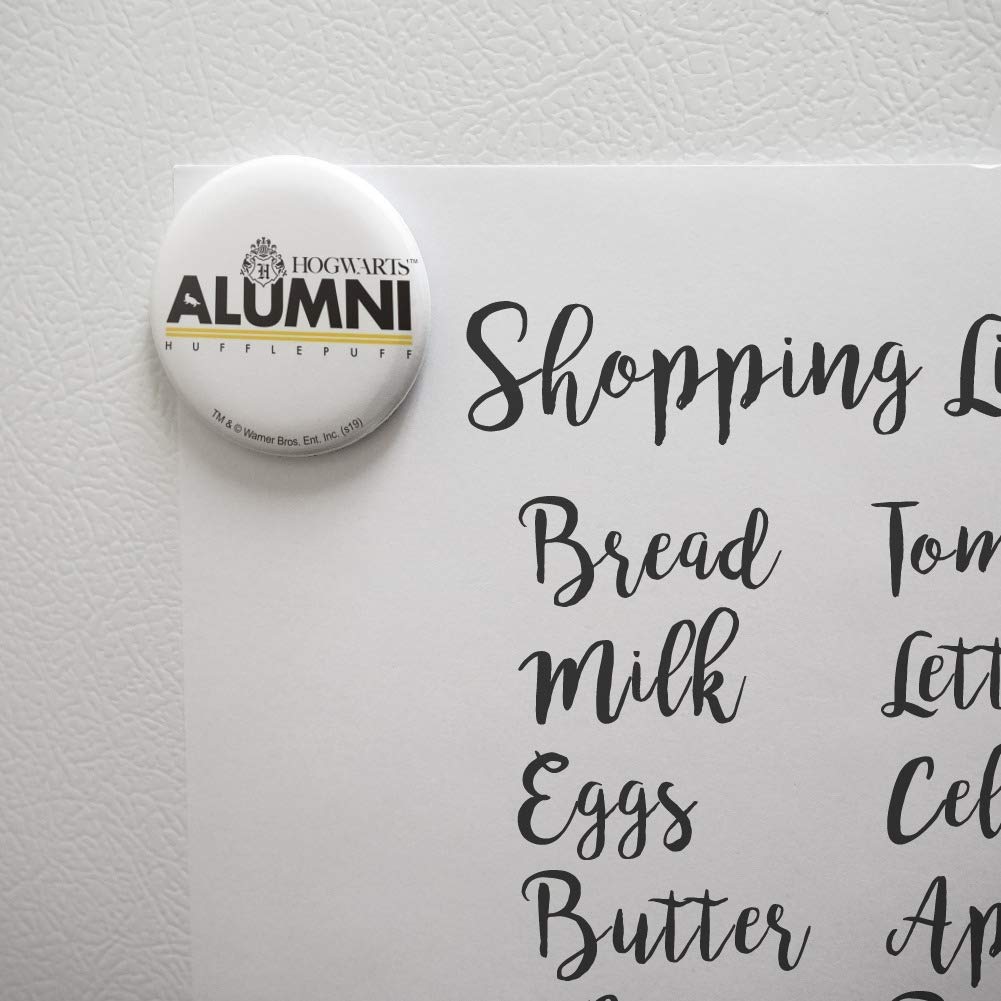 HOGWARTS™
ALUMNI
HUFFLEPUFF
TM & © Warner Bros. Ent. Inc. (s19)
Shopping Li
Bread
Milk
Eggs
Butter
Tom
Lett
Cel
Ap